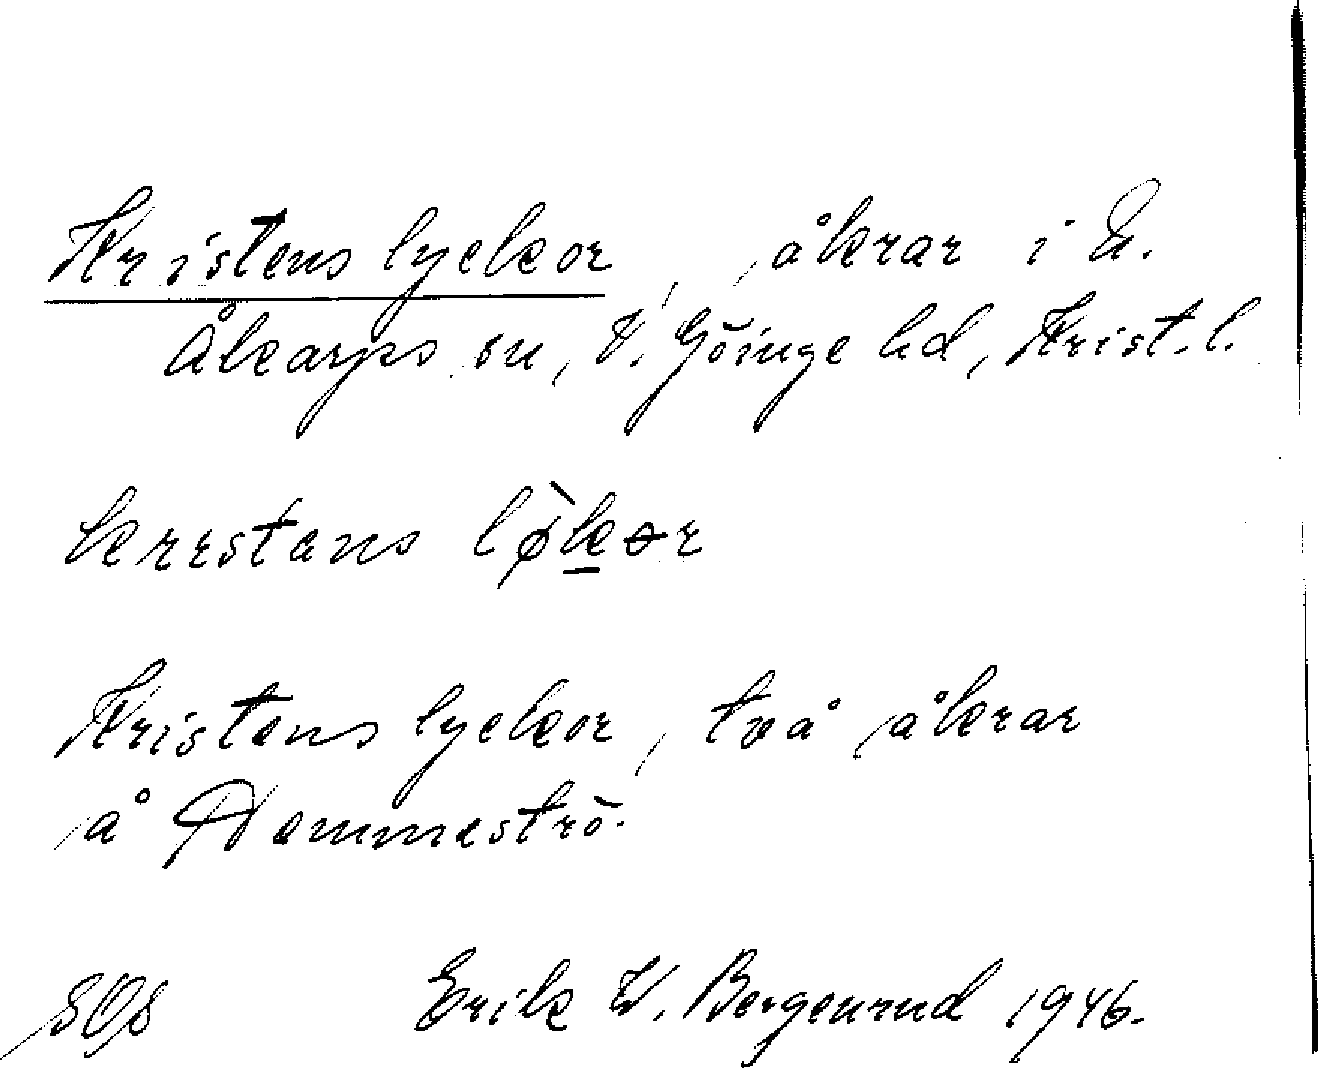 Kristens lyckor, åkrar i N.
Åkarps sn, V. Göinge hd, Krist. l.
krɪstans lø̀kər
Kristens lyckor, två åkrar
å Nemmeströ.
Erik W. Bergenrud 1946.